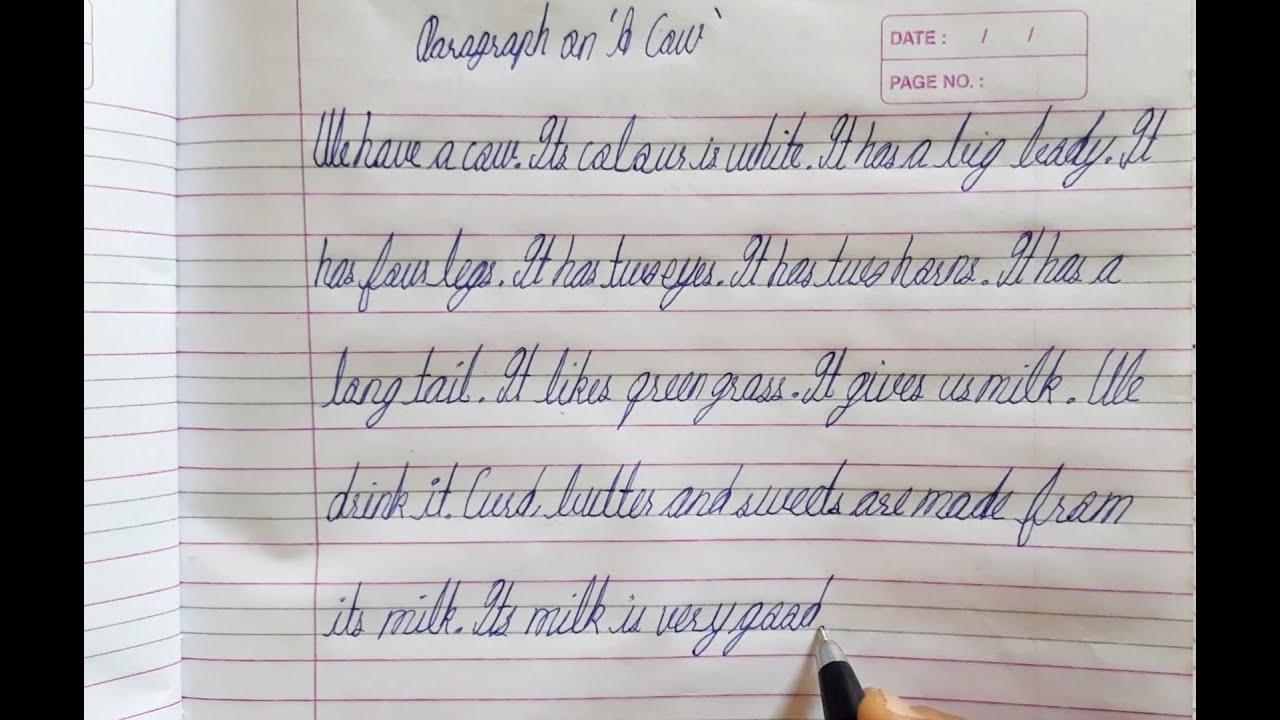 Paragraph on 'A Cow'
DATE : / /
PAGE NO. :
We have a cow. Its colour is white. It has a big body. It
has four legs. It has two eyes. It has two horns. It has a
long tail. It likes green grass. It gives us milk. We
drink it. Curd, butter and sweets are made from
its milk. Its milk is very good.